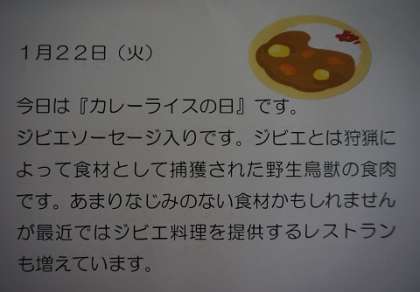 1月22日（火）
今日は『カレーライスの日』です。
ジビエソーセージ入りです。ジビエとは狩猟に
よって食材として捕獲された野生鳥獣の食肉
です。あまりなじみのない食材かもしれません
が最近ではジビエ料理を提供するレストラン
も増えています。